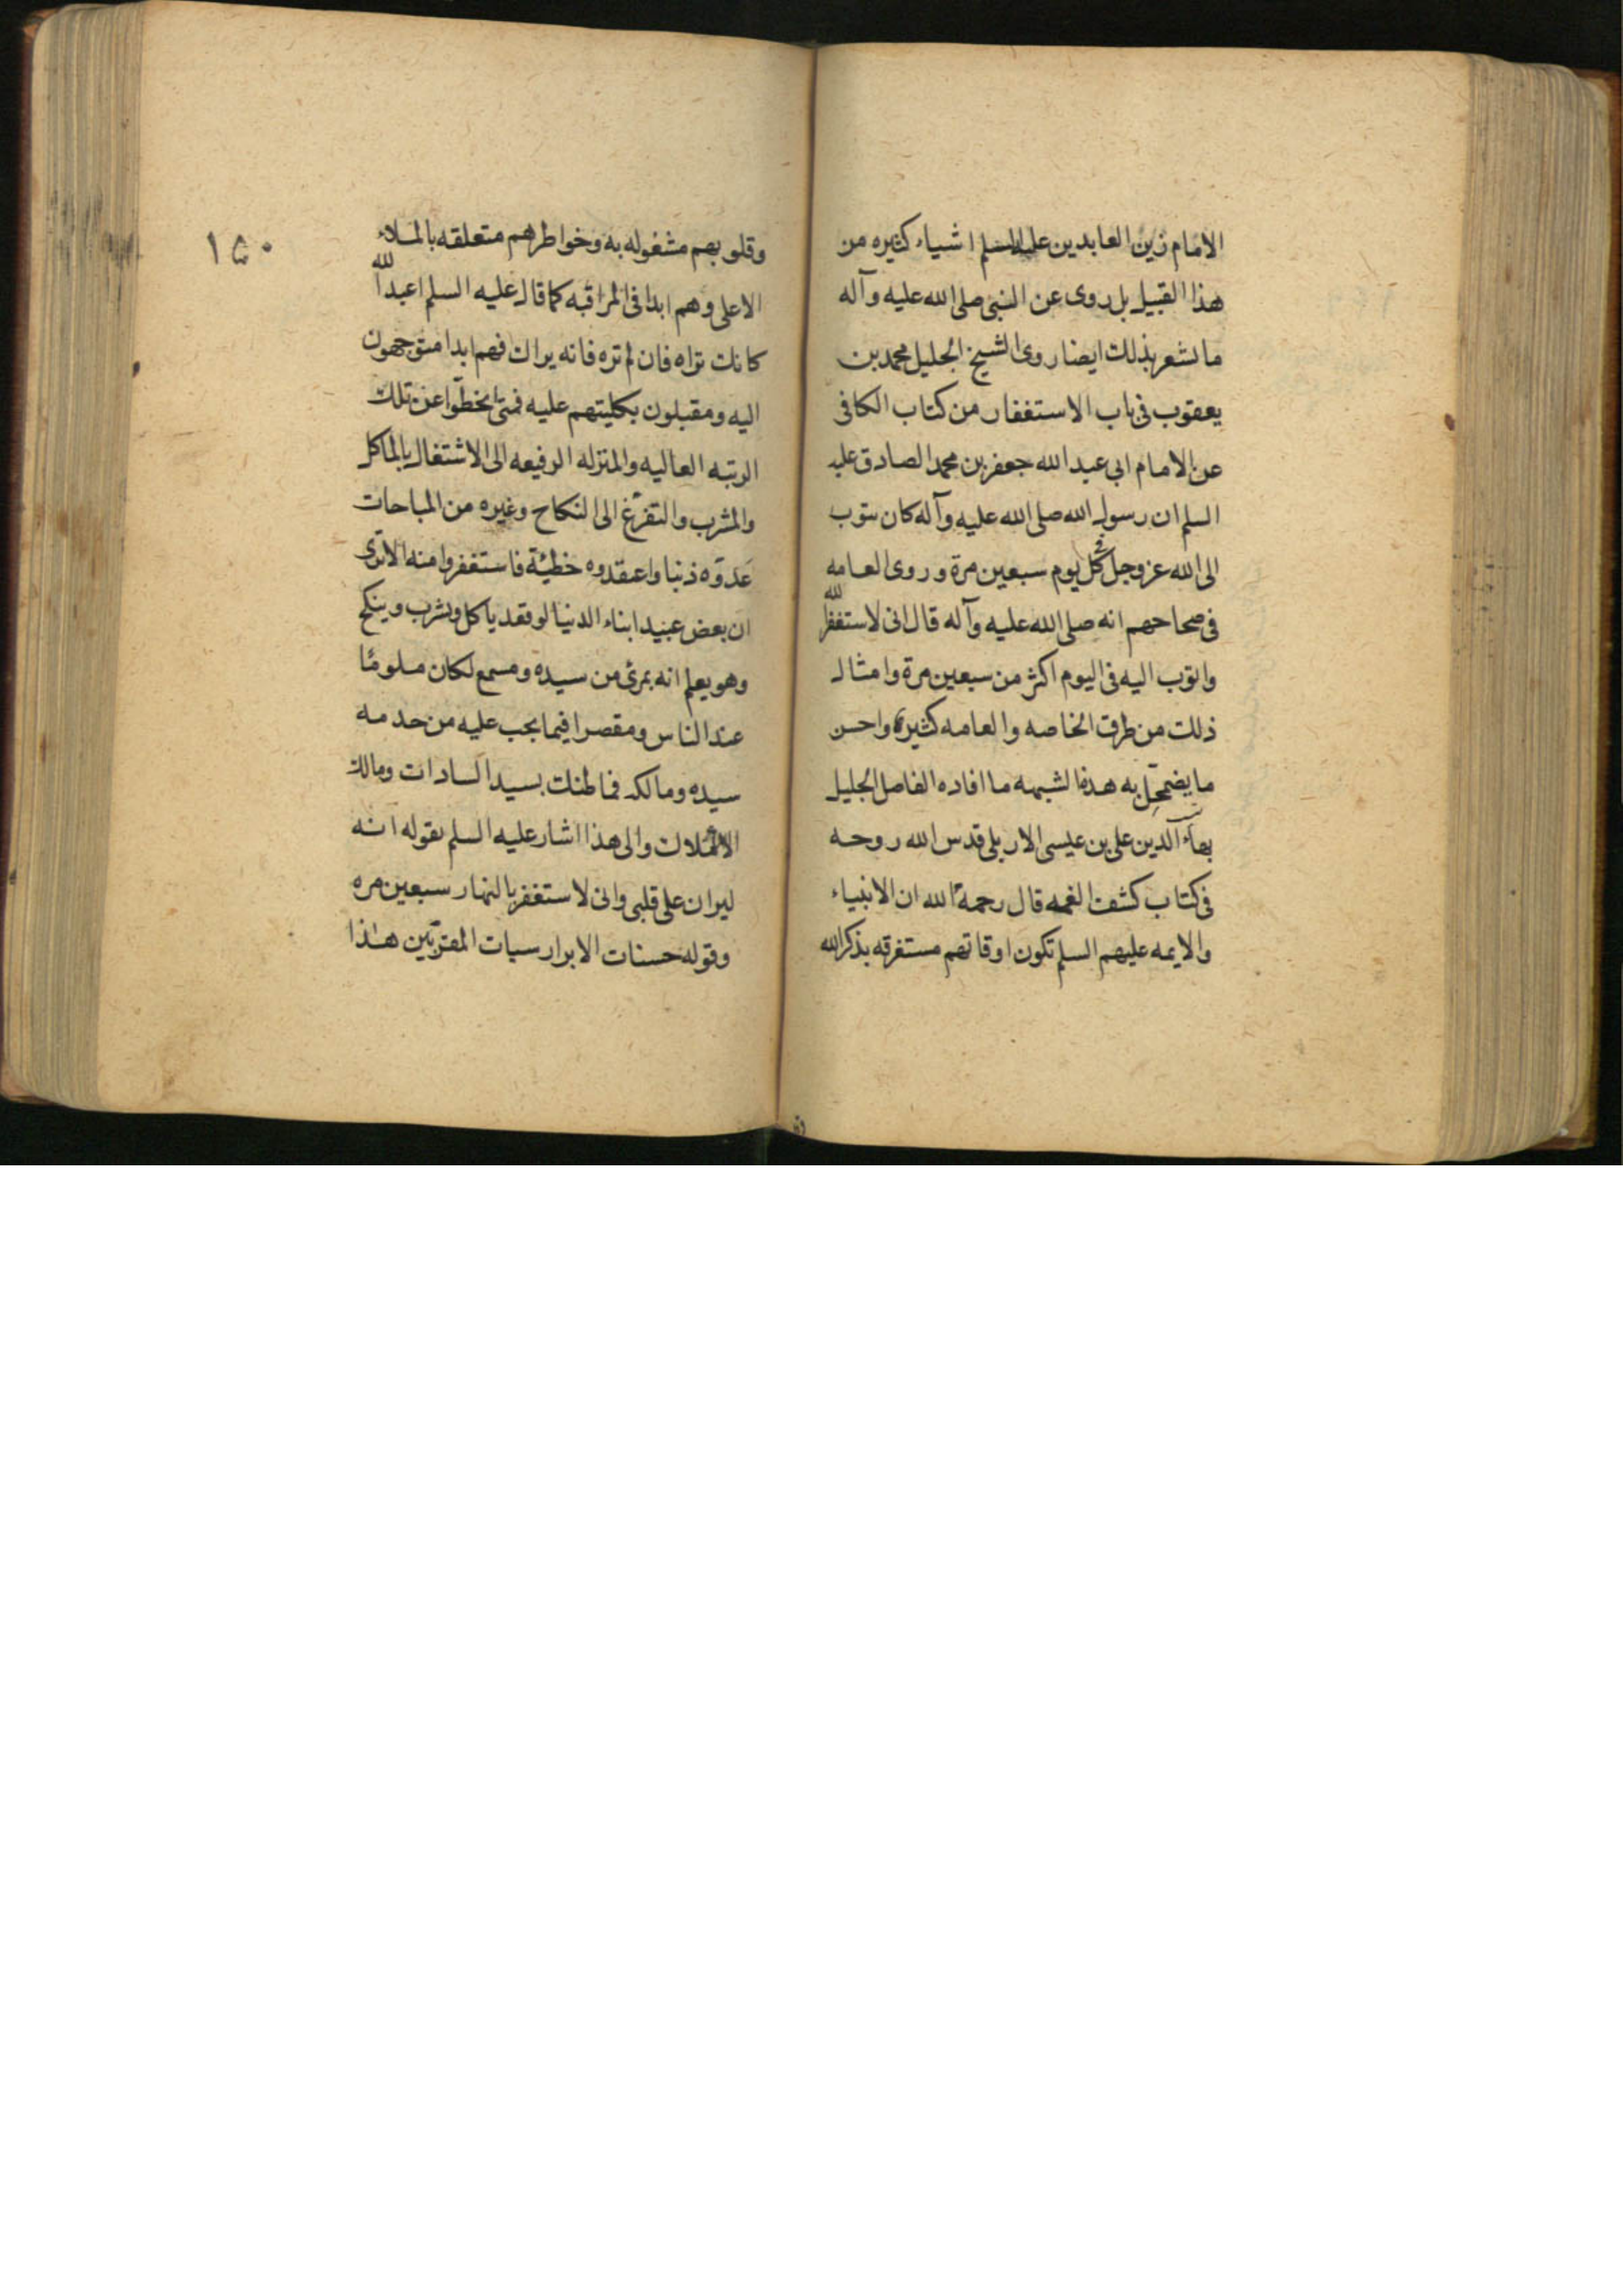 الامام زين العابدين عليه السلم اشياء كثيره من
هذا القبيل بل روى عن النبى صلى الله عليه وآله
ما يشعر بذلك ايضا روى الشيخ الجليل محمد بن
يعقوب فى باب الاستغفار من كتاب الكافى
عن الامام ابى عبد الله جعفر بن محمد الصادق عليه
السلم ان رسول الله صلى الله عليه وآله كان يتوب
الى الله عز وجل فى كل يوم سبعين مرة وروى العامه
فى صحاحهم انه صلى الله عليه وآله قال انى لاستغفر الله
واتوب اليه فى اليوم اكثر من سبعين مرة وامثال
ذلك من طرق الخاصه والعامه كثيرة واحسن
ما يضمحل به هذه الشبهه ما افاده الفاضل الجليل
بهاء الدين على بن عيسى الاربلى قدس الله روحه
فى كتاب كشف الغمه قال رحمه الله ان الانبياء
والايمه عليهم السلم تكون اوقاتهم مستغرقه بذكر الله
١٥٠
وقلوبهم مشغوله به وخواطرهم متعلقه بالملاء
الاعلى وهم ابدا فى المراقبه كما قال عليه السلم اعبد الله
كانك تراه فان لم تره فانه يراك فهم ابدا متوجهون
اليه ومقبلون بكليتهم عليه فمتى انحطوا عن تلك
الرتبه العاليه والمنزله الرفيعه الى الاشتغال بالماكل
والمشرب والتفرغ الى النكاح وغيره من المباحات
عدوه ذنبا واعتقدوه خطيئة فاستغفروا منه الا ترى
ان بعض عبيد ابناء الدنيا لو قعد ياكل ويشرب وينكح
وهو يعلم انه بمرئ من سيده ومسمع لكان ملومًا
عند الناس ومقصرا فيما يجب عليه من خدمه
سيده ومالكه فما ظنك بسيد السادات ومالك
الاملاك والى هذا اشار عليه السلم بقوله انه
ليران على قلبى وانى لاستغفر بالنهار سبعين مره
وقوله حسنات الابرار سيات المقربين هذا